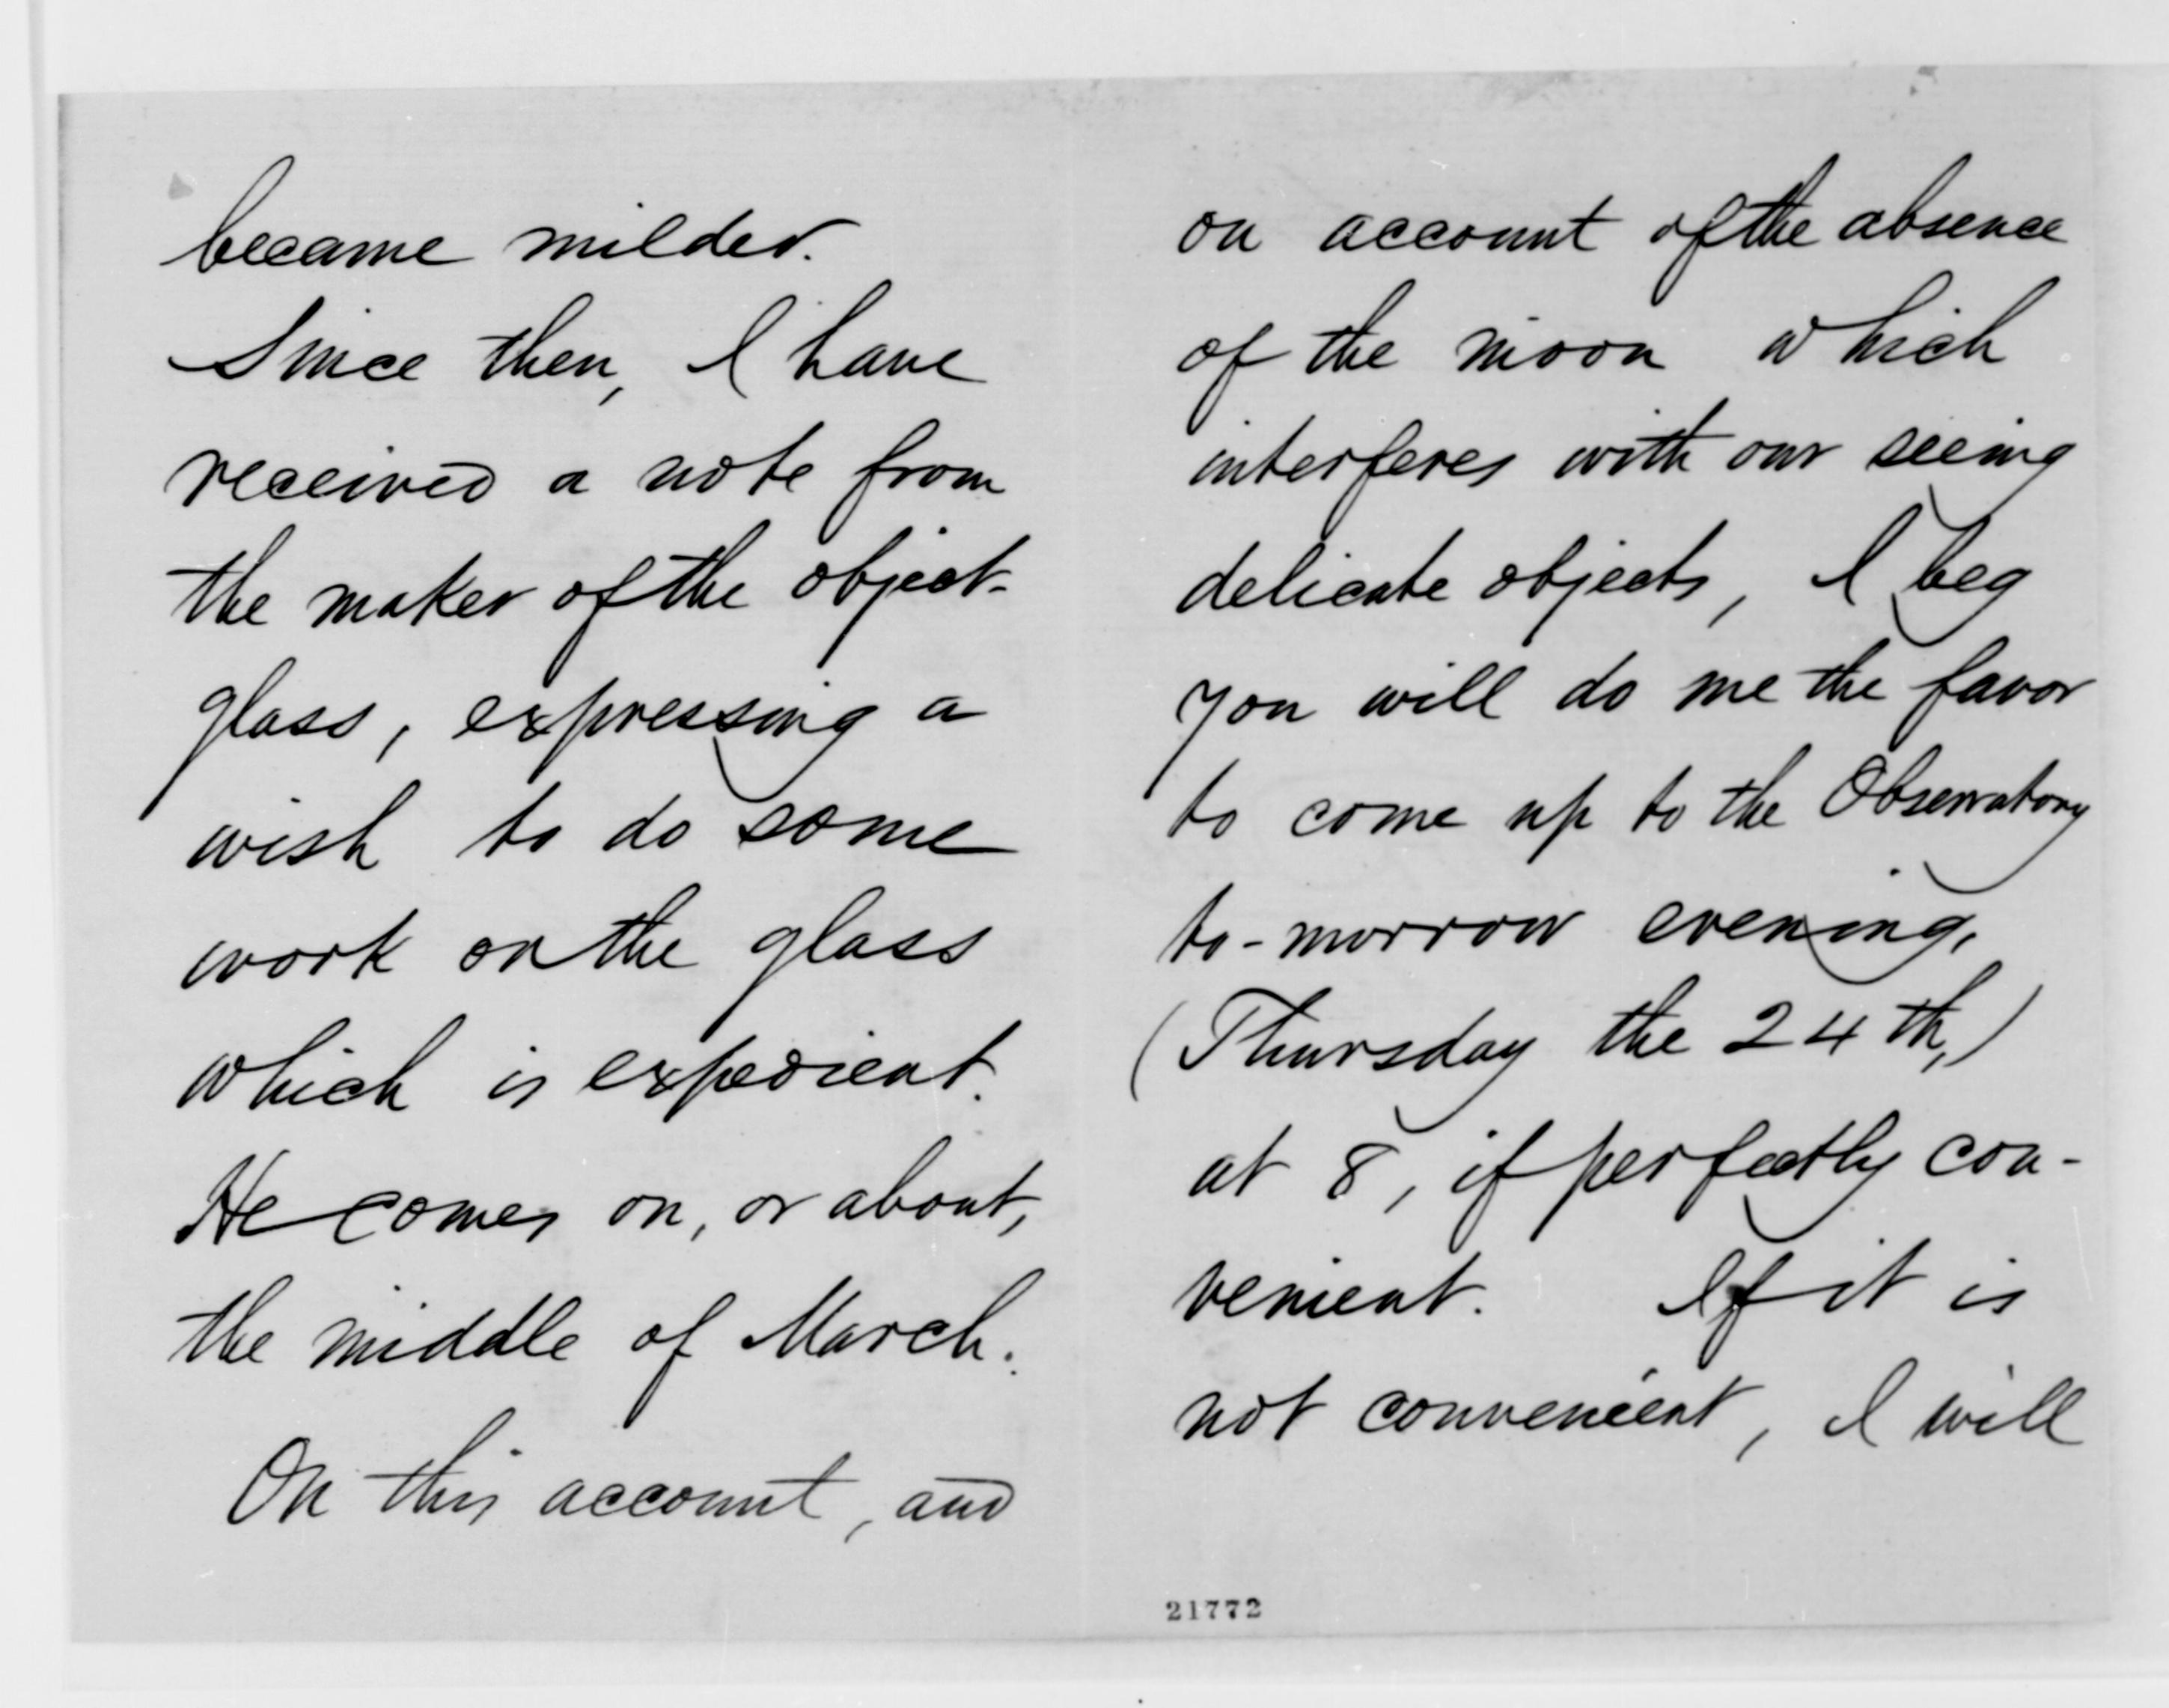 became milder.
Since then, I have
received a note from
the maker of the object-
glass, expressing a
wish to do some
work on the glass
which is expedient.
He comes on, or about,
the middle of March.
On this account, and
on account of the absence
of the moon which
interferes with our seeing
delicate objects, I beg
you will do me the favor
to come up to the Observatory
to-morrow evening,
(Thursday the 24th,)
at 8, if perfectly con-
venient. If it is
not convenient, I will
21772